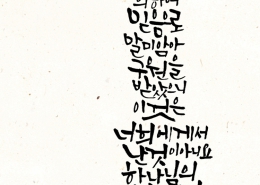 믿음으로
말미암아
구원을
받았으니
이것은
너희에게서
난것이아니요
하나님의